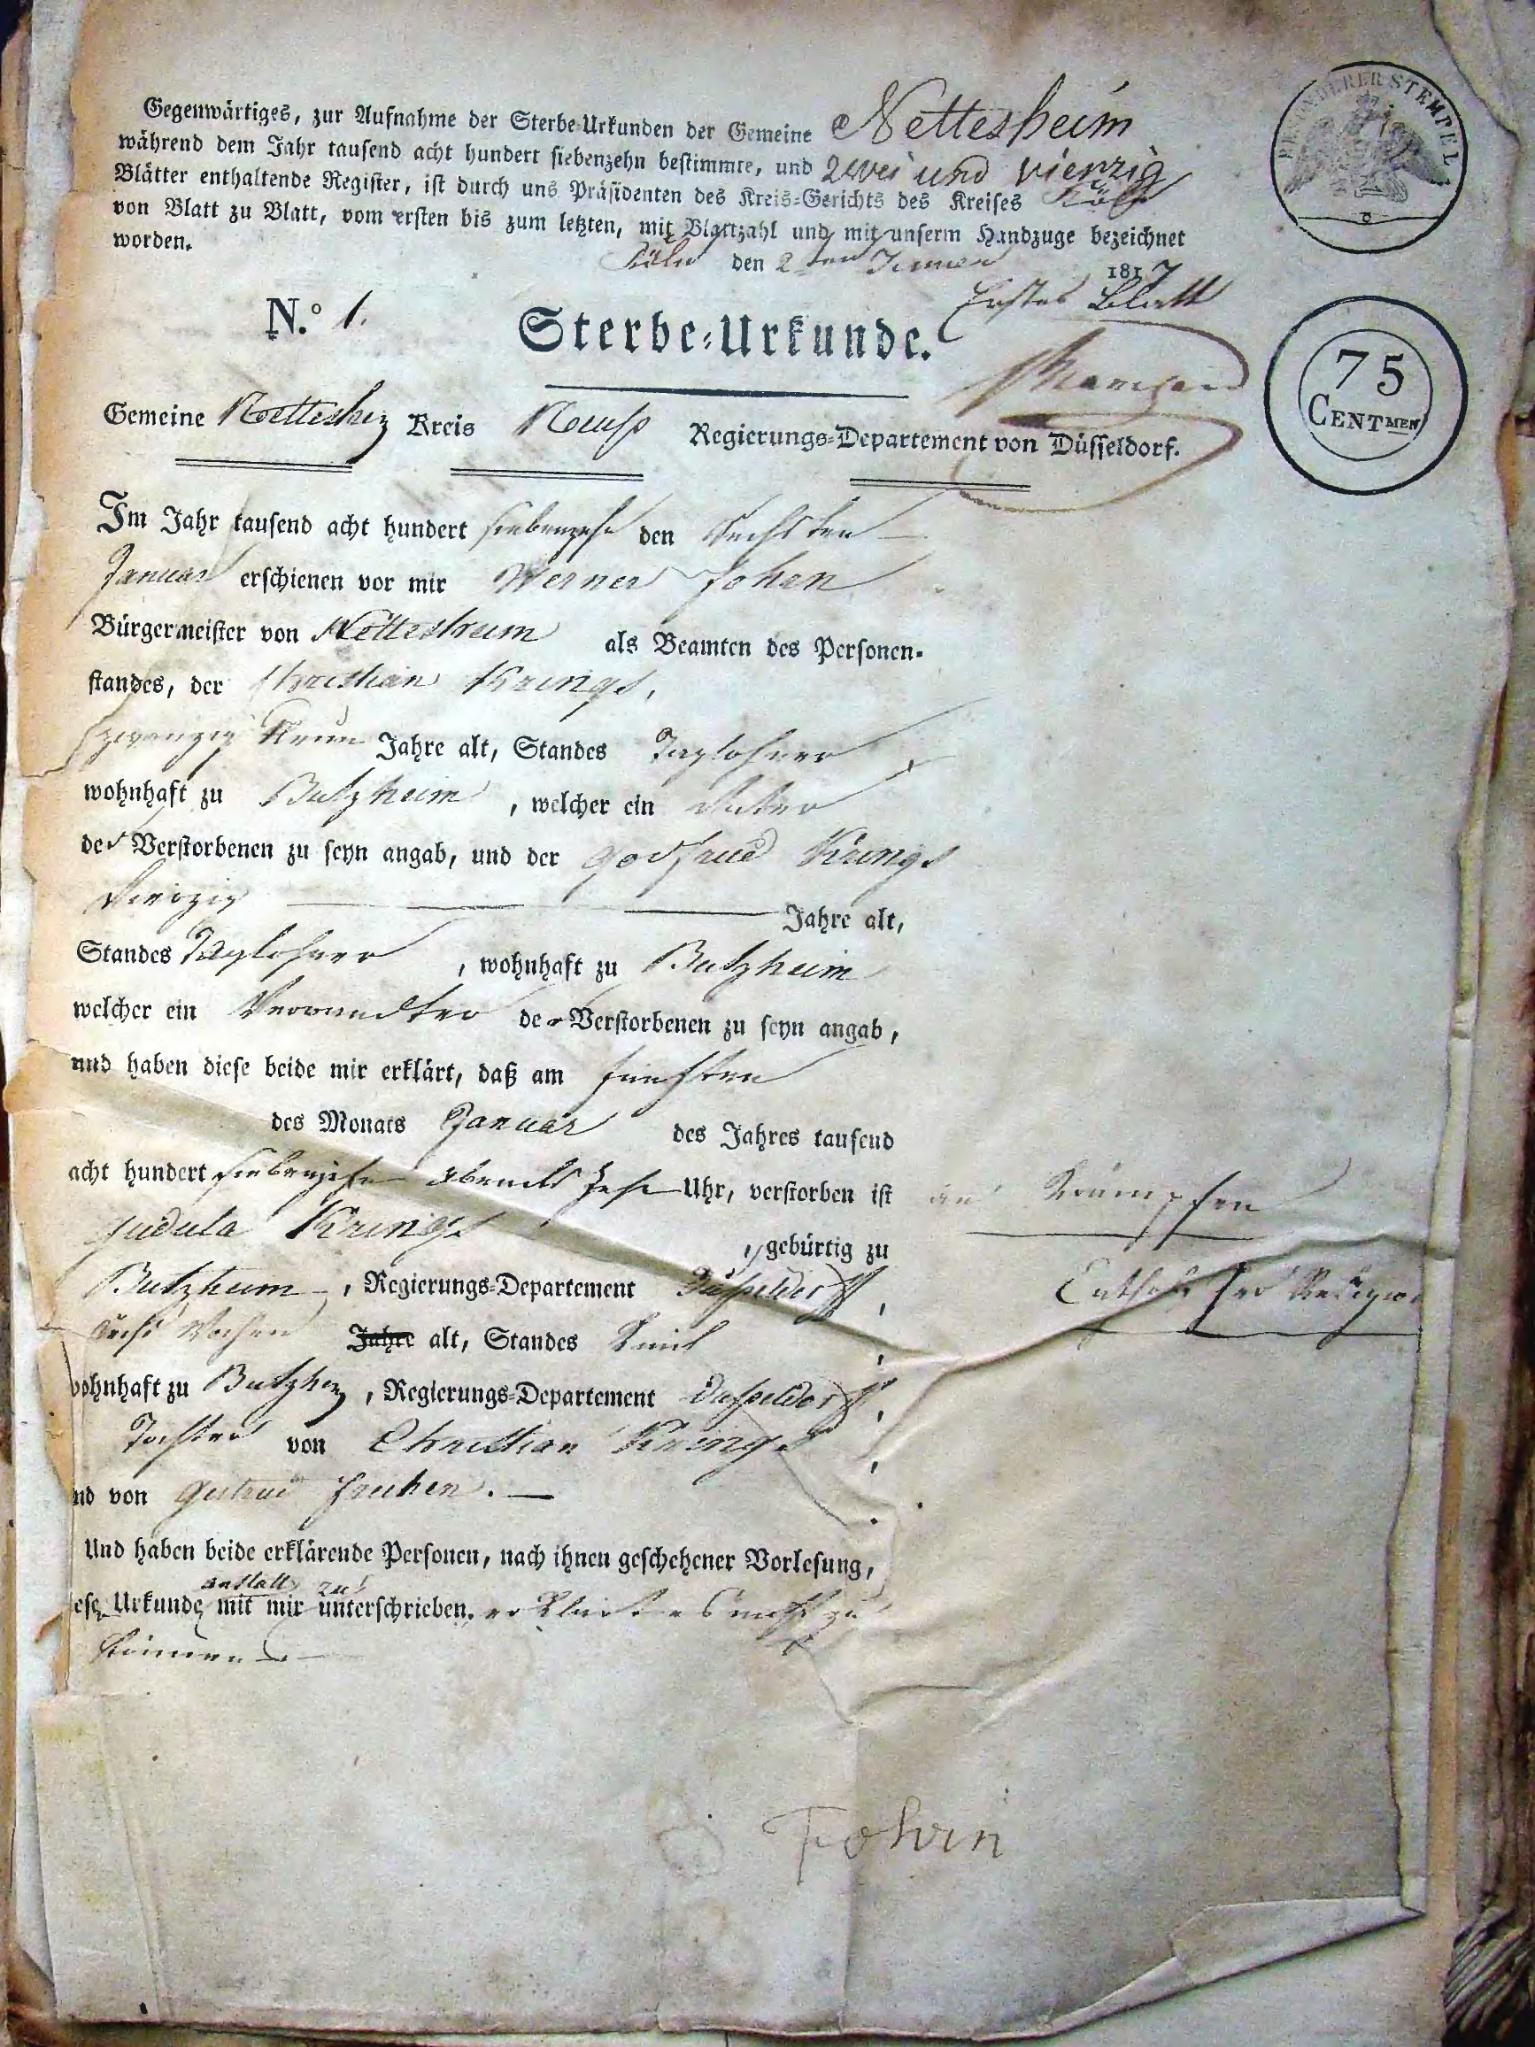 Gegenwärtiges, zur Aufnahme der Sterbe-Urkunden der Gemeine Nettesheim
während dem Jahr tausend acht hundert siebenzehn bestimmte, und zwei und vierzig
Blätter enthaltende Register, ist durch uns Präsidenten des Kreis-Gerichts des Kreises Köln
von Blatt zu Blatt, vom ersten bis zum letzten, mit Blattzahl und mit unserm Handzuge bezeichnet
worden.
Köln den 2ten Januar 1817
Erstes Blatt
BESONDERER STEMPEL
N.o 1.
Sterbe-Urkunde.
75
CENTMEN
Gemeine Nettesheim Kreis Neuss Regierungs-Departement von Düsseldorf.
Im Jahr tausend acht hundert siebenzehn den Sechsten
Januar erschienen vor mir Werner Johen
Bürgermeister von Nettesheim als Beamten des Personen-
standes, der Christian Krings,
zwanzig Neun Jahre alt, Standes Taglohner,
wohnhaft zu Butzheim, welcher ein Vater
der Verstorbenen zu seyn angab, und der Godfried Krings
Vierzig Jahre alt,
Standes Taglohner, wohnhaft zu Butzheim
welcher ein Verwandter der Verstorbenen zu seyn angab,
und haben diese beide mir erklärt, daß am fünften
des Monats Januar des Jahres tausend
acht hundert siebenzehn Abends Zehn Uhr, verstorben ist an Krämpfen
Gudula Krings, gebürtig zu
Butzheim, Regierungs-Departement Düsseldorf,
Sechs Wochen Jahre alt, Standes
Catholischer Religion
wohnhaft zu Butzheim, Regierungs-Departement Düsseldorf,
Tochter von Christian Krings,
und von Gertrud Frechen.
Und haben beide erklärende Personen, nach ihnen geschehener Vorlesung,
diese Urkunde anstatt mit mir zu unterschrieben. erklärt es nicht zu
können
Johen